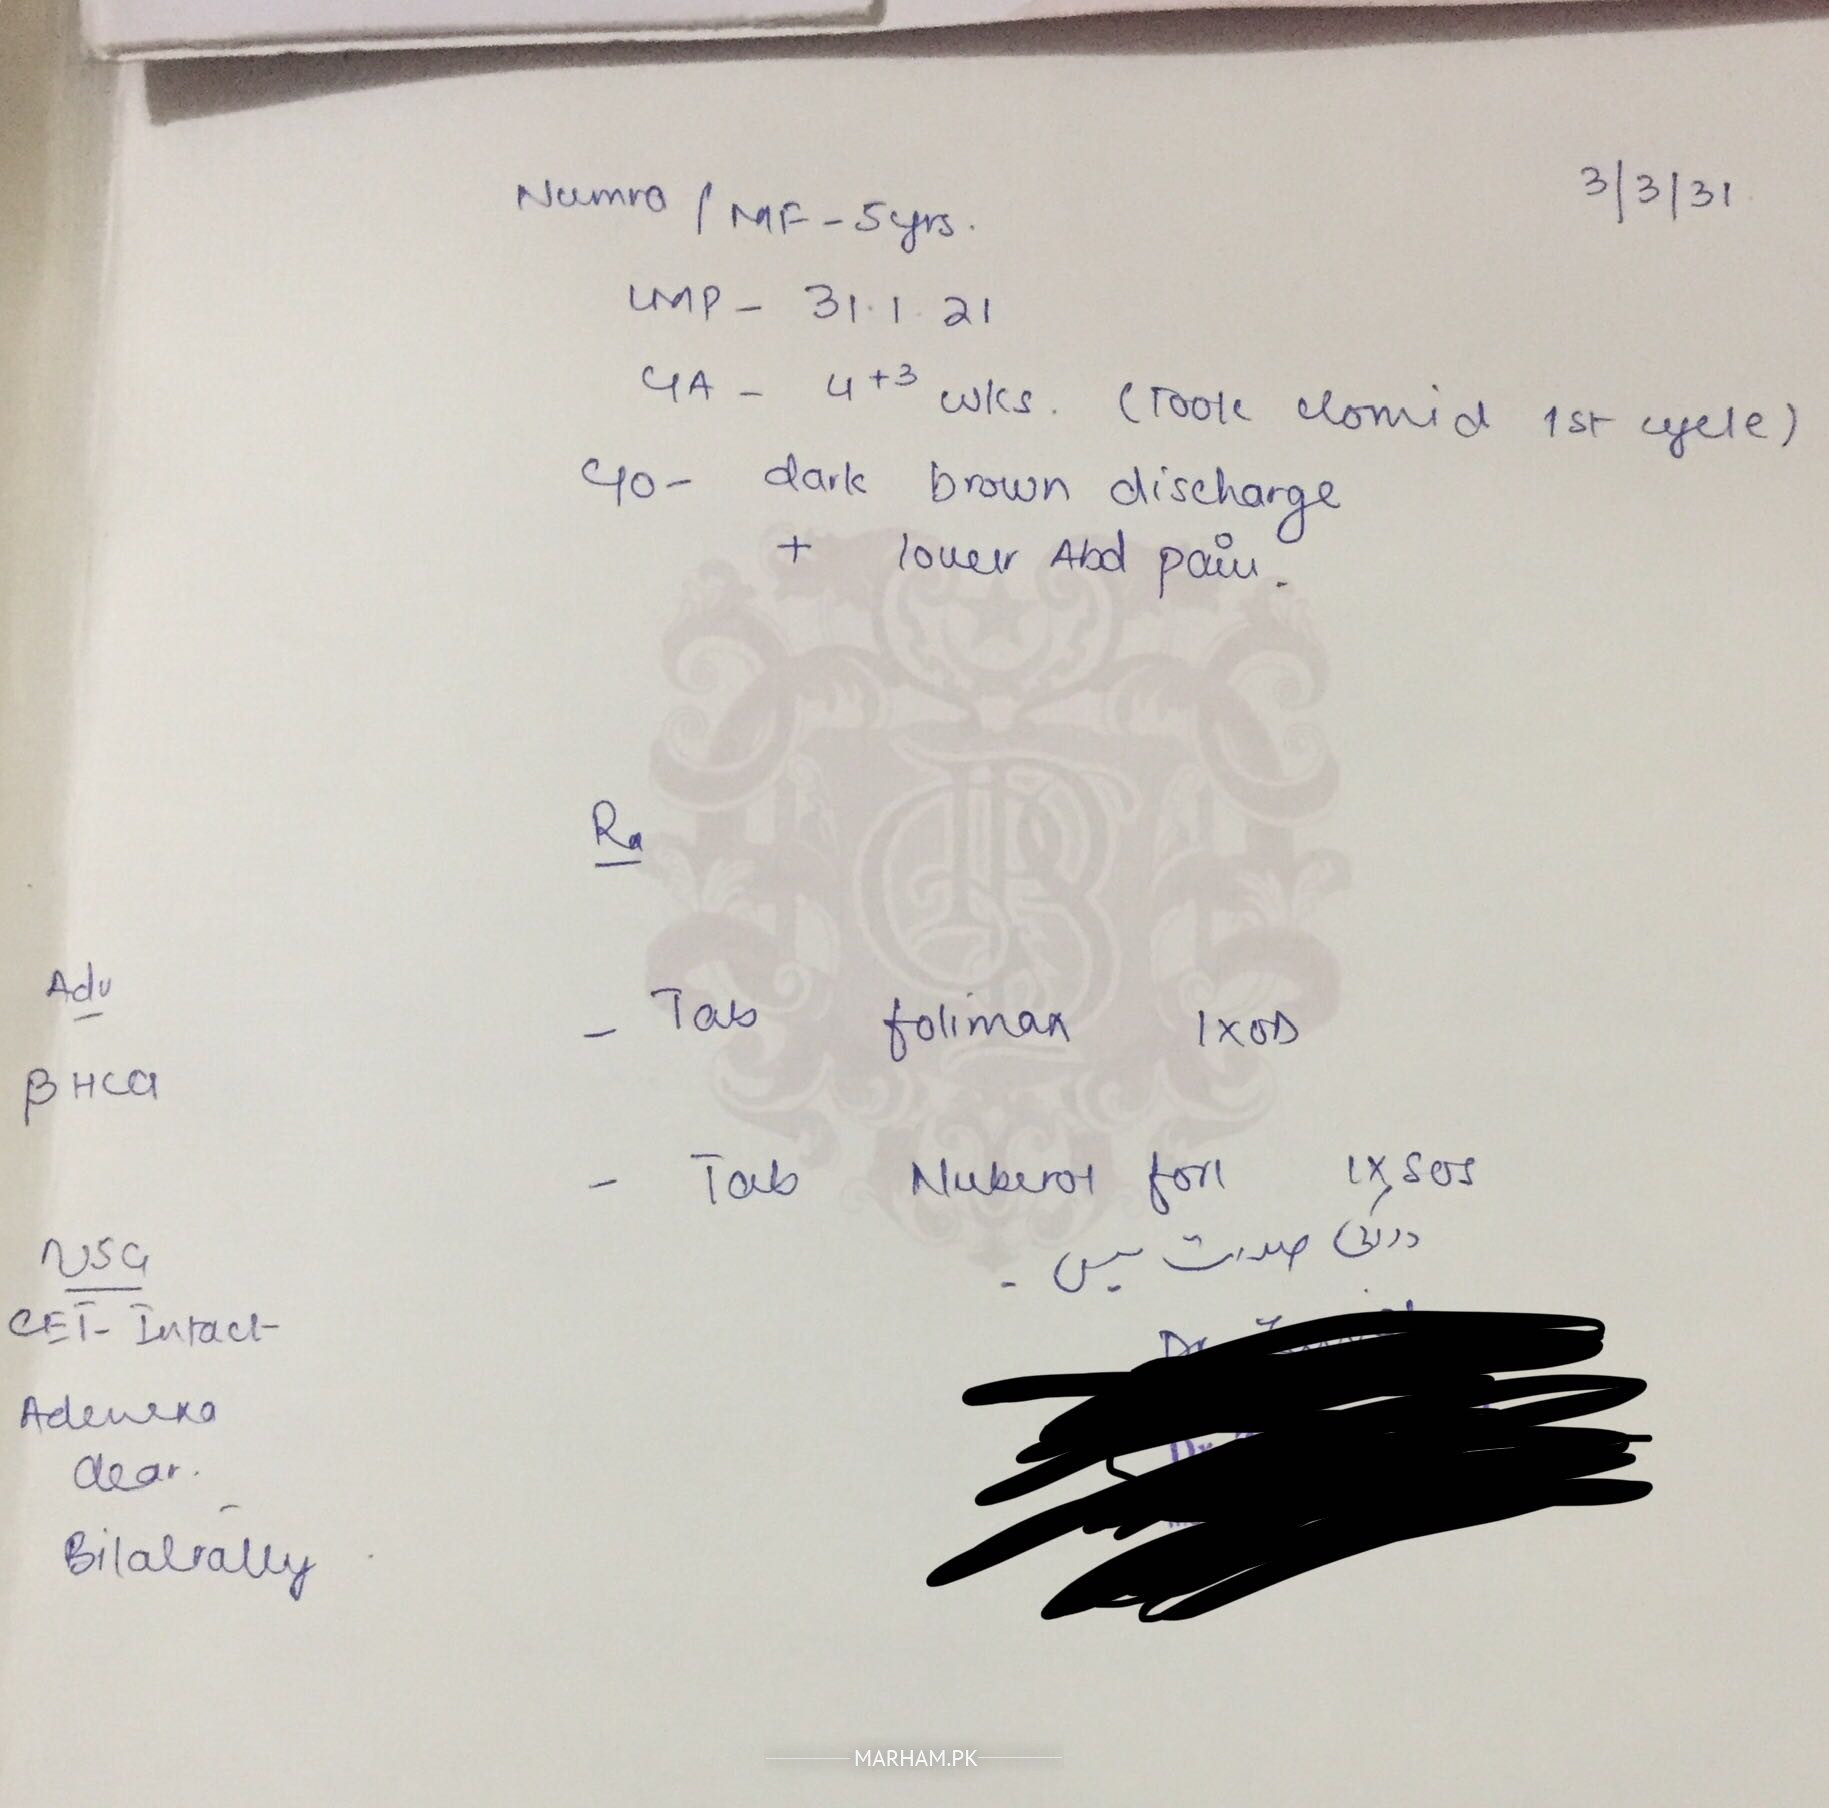 Numra / MF - 5yrs.
3/3/31
LMP - 31.1.21
GA - 4+3 wks. (Took clomid 1st cycle)
C/O - dark brown discharge
+ lower Abd pain.
Rx
Adv
- Tab folimax 1XOD
βHCG
- Tab Nuberol fort 1XSOS
درد کی صورت میں -
USG
CET - Intact
Adenexa
clear.
Bilatrally
Dr.
Dr.
MARHAM.PK